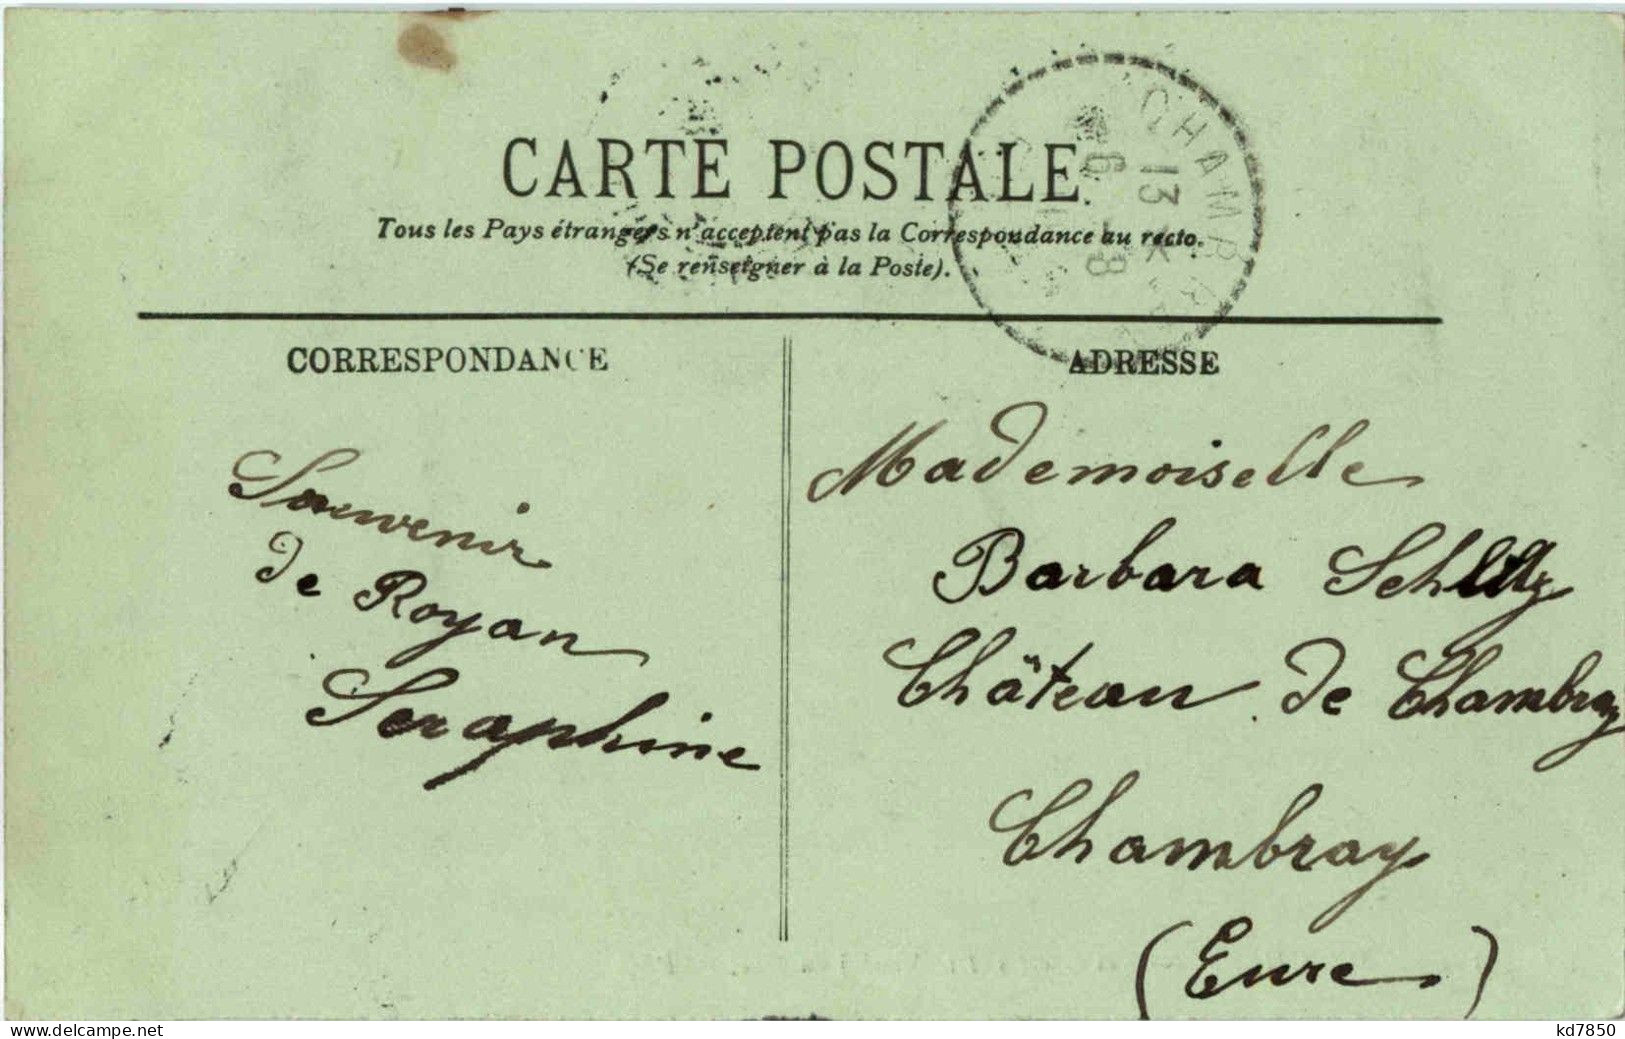 CARTE POSTALE
Tous les Pays étrangers n'acceptent pas la Correspondance au recto.
(Se renseigner à la Poste).
CORRESPONDANCE
ADRESSE
Souvenir
de Royan
Seraphine
Mademoiselle
Barbara
Château de Chambray
Chambray
(Eure)
www.delcampe.net
kd7850